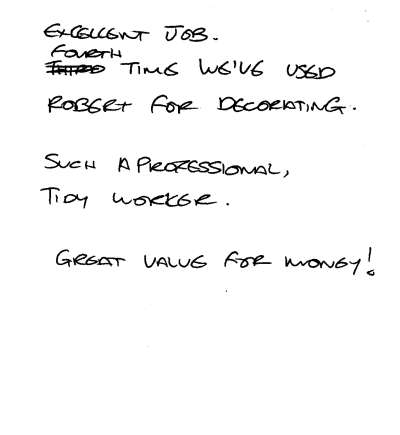 EXCELLENT JOB.
FOURTH
THIRD TIME WE'VE USED
ROBERT FOR DECORATING.
SUCH A PROFESSIONAL,
TIDY WORKER.
GREAT VALUE FOR MONEY!